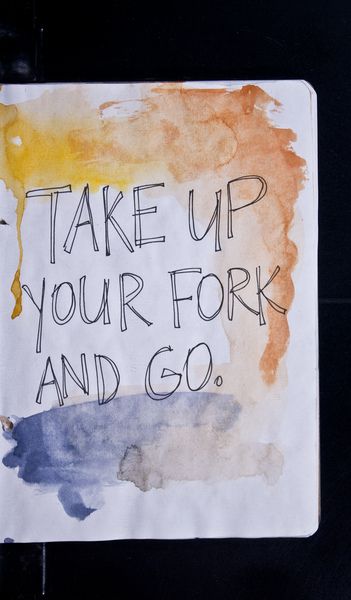 TAKE UP
YOUR FORK
AND GO.